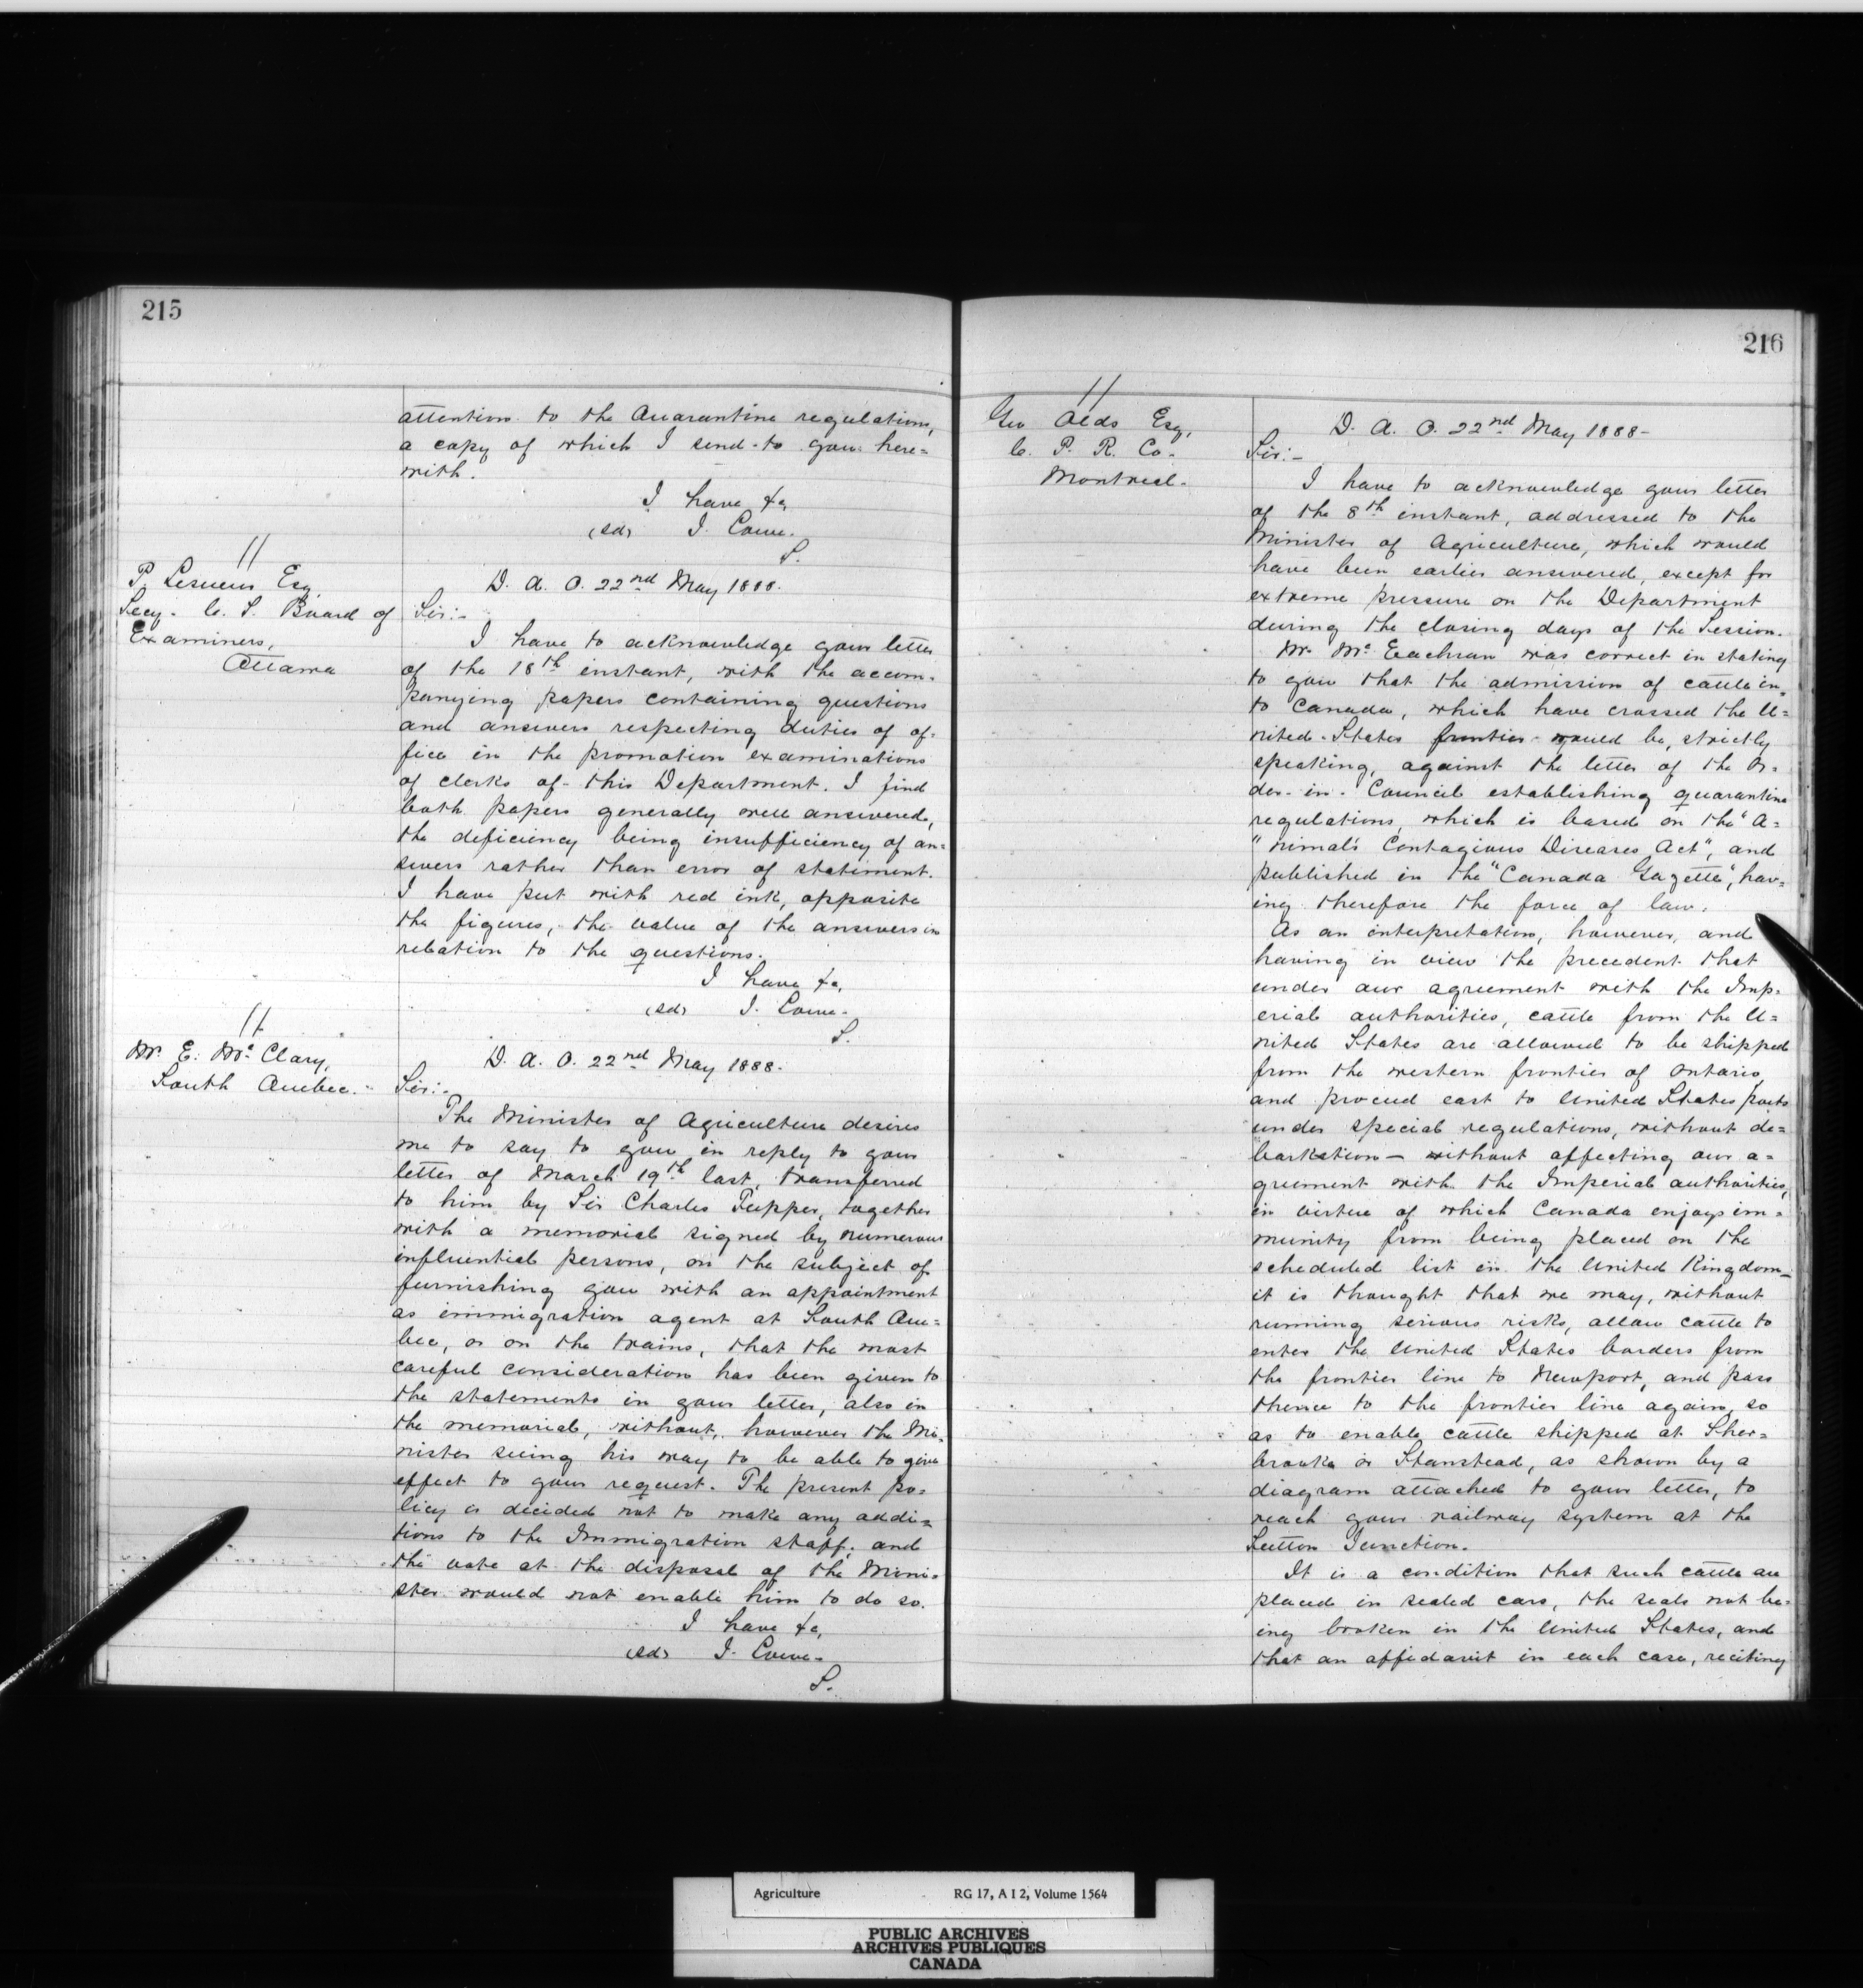 215
attention to the Quarantine regulations,
a copy of which I send to you here=
with.
I have &c,
(sd) J. Lowe.
S.
//
P. Lesueur Esq,
Secy. C. S. Board of
Examiners,
Ottawa
D. A. O. 22nd May 1888.
Sir:-
I have to acknowledge your letter
of the 18th instant, with the accom-
panying papers containing questions
and answers respecting duties of of-
fice in the promotion examinations
of clerks of this Department. I find
both papers generally well answered,
the deficiency being insufficiency of an=
swers rather than error of statement.
I have put with red ink, opposite
the figures, the value of the answers in
relation to the questions.
I have &c,
(sd) J. Lowe.
S.
//
Mr. E. McClary,
South Quebec.
D. A. O. 22nd May 1888.
Sir:-
The Minister of Agriculture desires
me to say to you in reply to your
letter of March 19th last, transferred
to him by Sir Charles Tupper, together
with a memorial signed by numerous
influential persons, on the subject of
furnishing you with an appointment
as immigration agent at South Que=
bec, or on the trains, that the most
careful consideration has been given to
the statements in your letter, also in
the memorial, without, however the Mi-
nister seeing his way to be able to give
effect to your request. The present po=
licy is decided not to make any addi=
tions to the Immigration staff; and
the vote at the disposal of the Mini=
ster would not enable him to do so.
I have &c,
(sd) J. Lowe.
S.
216
//
Geo Olds Esq,
C. P. R. Co.
Montreal.
D. A. O. 22nd May 1888-
Sir:-
I have to acknowledge your letter
of the 8th instant, addressed to the
Minister of Agriculture, which would
have been earlier answered, except for
extreme pressure on the Department
during the closing days of the Session.
Mr. McEachran was correct in stating
to you that the admission of cattle in=
to Canada, which have crossed the U=
nited States frontier would be, strictly
speaking, against the letter of the Or-
der-in-Council establishing quarantine
regulations, which is based on the "A=
"nimal's Contagious Diseases Act", and
published in the "Canada Gazette", hav=
ing therefore the force of law.
As an interpretation, however, and
having in view the precedent that
under our agreement with the Imp-
erial authorities, cattle from the U=
nited States are allowed to be shipped
from the western frontier of Ontario,
and proceed east to United States ports
under special regulations, without de=
barkation - without affecting our a=
greement with the Imperial authorities,
in virtue of which Canada enjoys im=
munity from being placed on the
scheduled list in the United Kingdom-
it is thought that we may, without
running serious risks, allow cattle to
enter the United States borders from
the frontier line to Newport, and pass
thence to the frontier line again, so
as to enable cattle shipped at Sher=
brooke or Stanstead, as shown by a
diagram attached to your letter, to
reach your railway system at the
Sutton Junction.
It is a condition that such cattle are
placed in sealed cars, the seals not be-
ing broken in the United States, and
that an affidavit in each case, reciting
Agriculture RG 17, A I 2, Volume 1564
PUBLIC ARCHIVES
ARCHIVES PUBLIQUES
CANADA